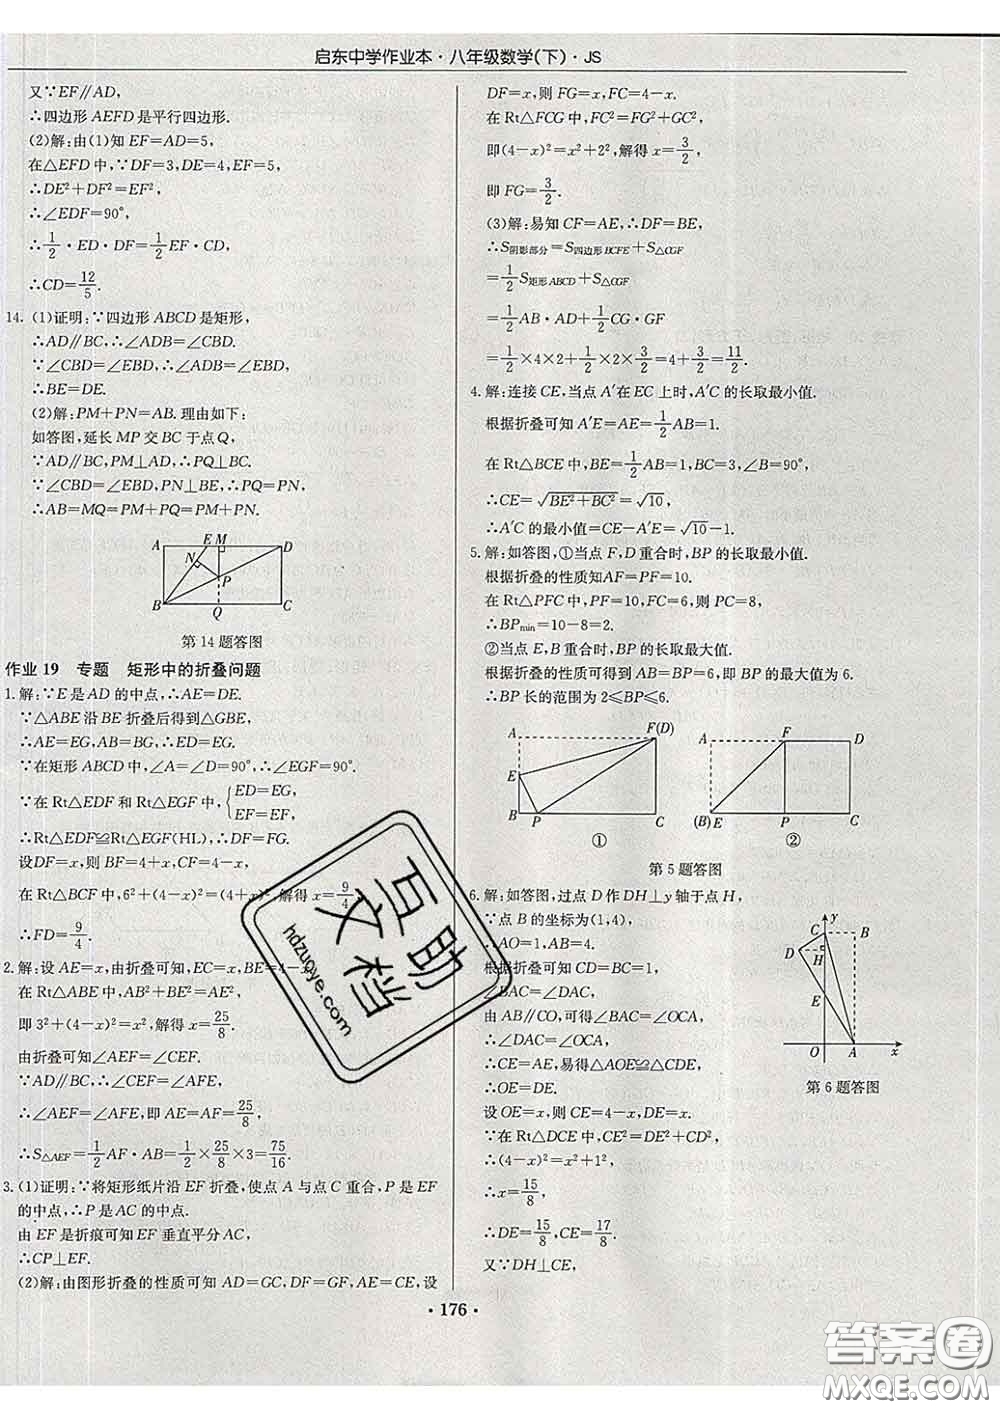 启东中学作业本·八年级数学(下)·JS
又∵EF∥AD,
∴四边形 AEFD 是平行四边形.
(2)解:由(1)知 EF=AD=5,
在△EFD 中,∵DF=3,DE=4,EF=5,
∴DE²+DF²=EF²,
∴∠EDF=90°,
∴1/2·ED·DF=1/2EF·CD,
∴CD=12/5.
14. (1)证明:∵四边形 ABCD 是矩形,
∴AD∥BC,∴∠ADB=∠CBD.
∵∠CBD=∠EBD,∴∠ADB=∠EBD.
∴BE=DE.
(2)解:PM+PN=AB.理由如下:
如答图,延长 MP 交 BC 于点 Q,
∵AD∥BC,PM⊥AD,∴PQ⊥BC.
∵∠CBD=∠EBD,PN⊥BE,∴PQ=PN,
∴AB=MQ=PM+PQ=PM+PN.
A E M D
N
P
B Q C
第14题答图
作业 19 专题 矩形中的折叠问题
1. 解:∵E 是 AD 的中点,∴AE=DE.
∵△ABE 沿 BE 折叠后得到△GBE,
∴AE=EG,AB=BG,∴ED=EG.
∵在矩形 ABCD 中,∠A=∠D=90°,∴∠EGF=90°.
∵在 Rt△EDF 和 Rt△EGF 中,{ED=EG, EF=EF,
∴Rt△EDF≌Rt△EGF(HL),∴DF=FG.
设DF=x,则 BF=4+x,CF=4-x,
在 Rt△BCF 中,6²+(4-x)²=(4+x)²,解得 x=9/4,
∴FD=9/4.
2. 解:设 AE=x,由折叠可知,EC=x,BE=4-x,
在 Rt△ABE 中,AB²+BE²=AE²,
即 3²+(4-x)²=x²,解得 x=25/8.
由折叠可知∠AEF=∠CEF.
∵AD∥BC,∴∠CEF=∠AFE,
∴∠AEF=∠AFE,即 AE=AF=25/8,
∴S△AEF=1/2AF·AB=1/2×25/8×3=75/16.
3. (1)证明:∵将矩形纸片沿 EF 折叠,使点 A 与点 C 重合,P 是 EF
的中点,∴P 是 AC 的中点.
由 EF 是折痕可知 EF 垂直平分 AC,
∴CP⊥EF.
(2)解:由图形折叠的性质可知 AD=GC,DF=GF,AE=CE,设
DF=x,则 FG=x,FC=4-x.
在 Rt△FCG 中,FC²=FG²+GC²,
即(4-x)²=x²+2²,解得 x=3/2,
即 FG=3/2.
(3)解:易知 CF=AE,∴DF=BE,
∴S阴影部分=S四边形BCFE+S△CGF
=1/2S矩形ABCD+S△CGF
=1/2AB·AD+1/2CG·GF
=1/2×4×2+1/2×2×3/2=4+3/2=11/2.
4. 解:连接 CE,当点 A′在 EC 上时,A′C 的长取最小值.
根据折叠可知 A′E=AE=1/2AB=1.
在 Rt△BCE 中,BE=1/2AB=1,BC=3,∠B=90°,
∴CE=√(BE²+BC²)=√10,
∴A′C 的最小值=CE-A′E=√10-1.
5. 解:如答图,①当点 F,D 重合时,BP 的长取最小值.
根据折叠的性质知AF=PF=10.
在 Rt△PFC 中,PF=10,FC=6,则 PC=8,
∴BPmin=10-8=2.
②当点 E,B 重合时,BP 的长取最大值.
根据折叠的性质可得到 AB=BP=6,即 BP 的最大值为 6.
∴BP 长的范围为 2≤BP≤6.
A F(D)
E
B P C
①
A F D
(B)E P C
②
第5题答图
6. 解:如答图,过点 D 作 DH⊥y 轴于点 H,
∵点 B 的坐标为(1,4),
∴AO=1,AB=4.
根据折叠可知 CD=BC=1,
∠BAC=∠DAC,
由 AB∥CO,可得∠BAC=∠OCA,
∴∠DAC=∠OCA,
∴CE=AE,易得△AOE≌△CDE,
∴OE=DE.
设 OE=x,则 CE=4-x,DE=x,
∵在 Rt△DCE 中,CE²=DE²+CD²,
∴(4-x)²=x²+1²,
∴x=15/8,
∴DE=15/8,CE=17/8.
又∵DH⊥CE,
y
C B
D H
E
O A x
第6题答图
·176·
互助文档
hdzuoye.com
答案圈
MXQE.COM